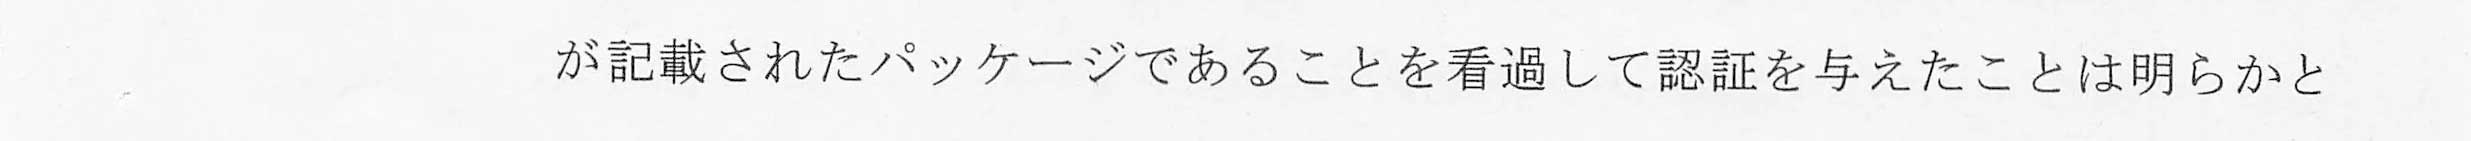 が記載されたパッケージであることを看過して認証を与えたことは明らかと